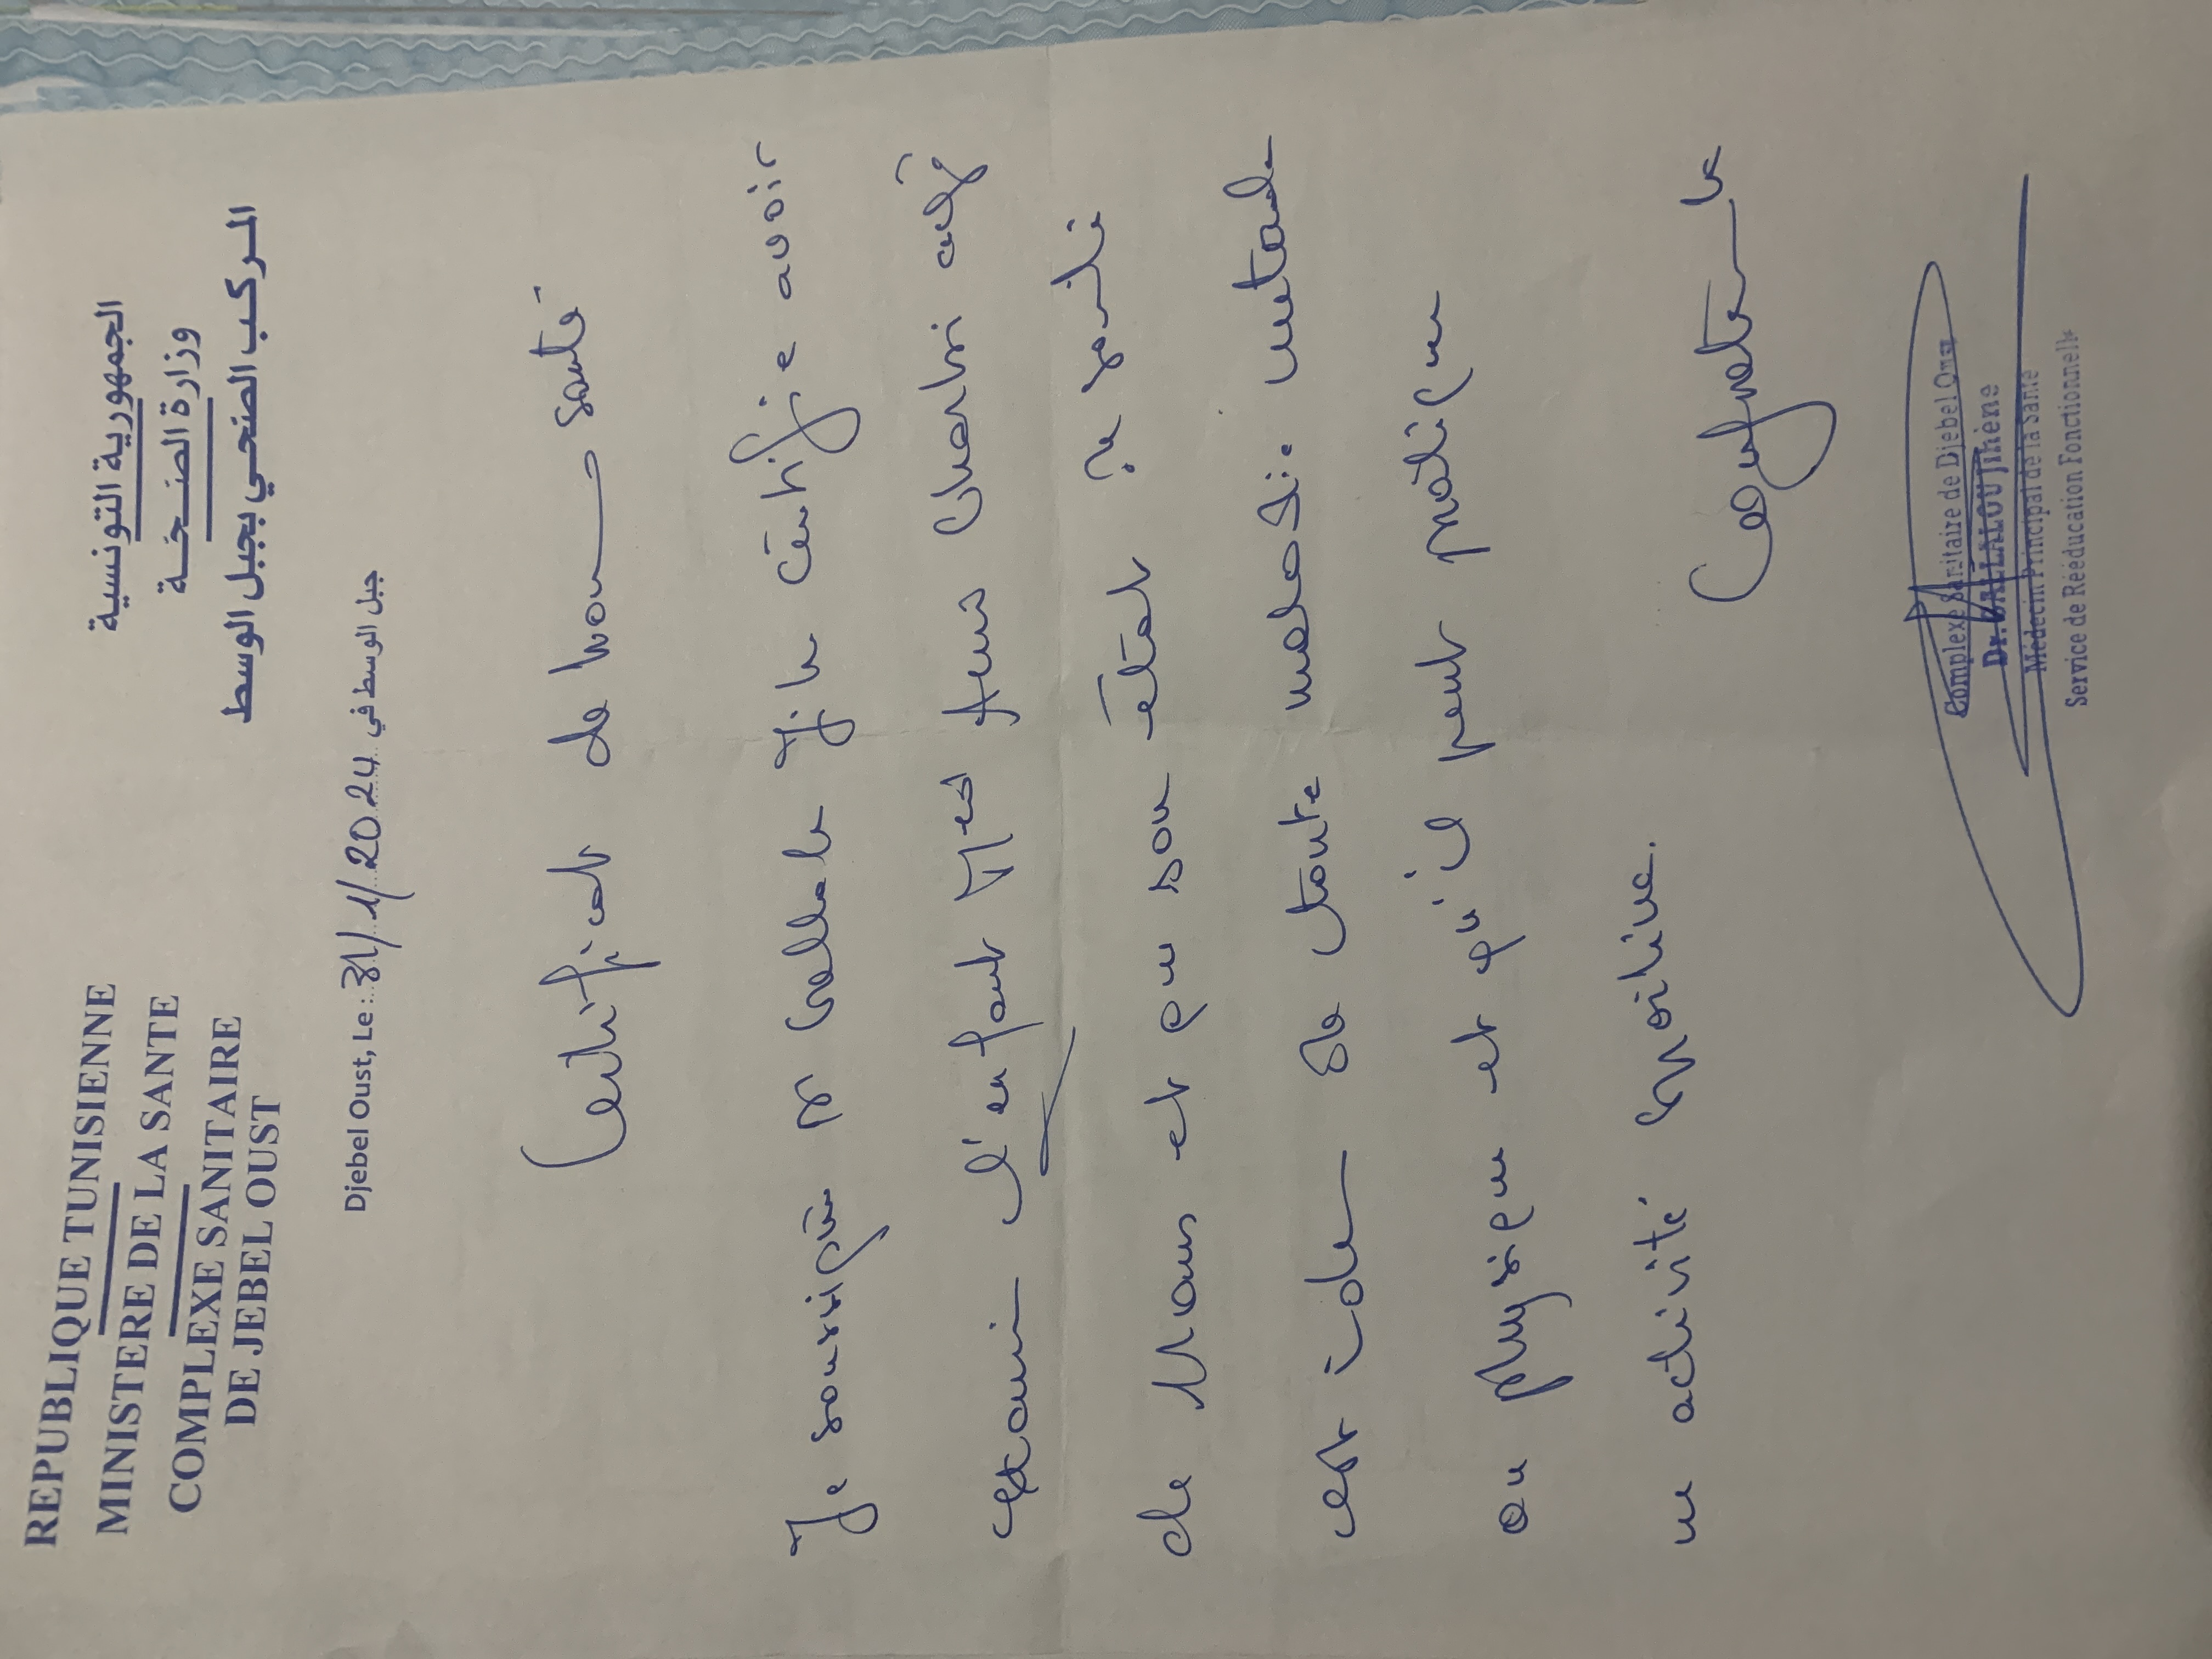 REPUBLIQUE TUNISIENNE
MINISTERE DE LA SANTE
COMPLEXE SANITAIRE
DE JEBEL OUST
الجمهورية التونسية
وزارة الصحة
المركب الصحي بجبل الوسط
Djebel Oust, Le : 31/1/2024 جبل الوسط في
Certificat de bonne santé
Je soussigné Dr Jihe certifie avoir
examiné l'enfant Med âgé
de 11 ans et que son état de santé
est indemne de toute maladie mentale
ou physique et qu'il peut pratiquer
une activité sportive.
Confraternelle
Complexe Sanitaire de Djebel Oust
Dr. BALLALOU Jihène
Médecin Principal de la Santé
Service de Rééducation Fonctionnelle